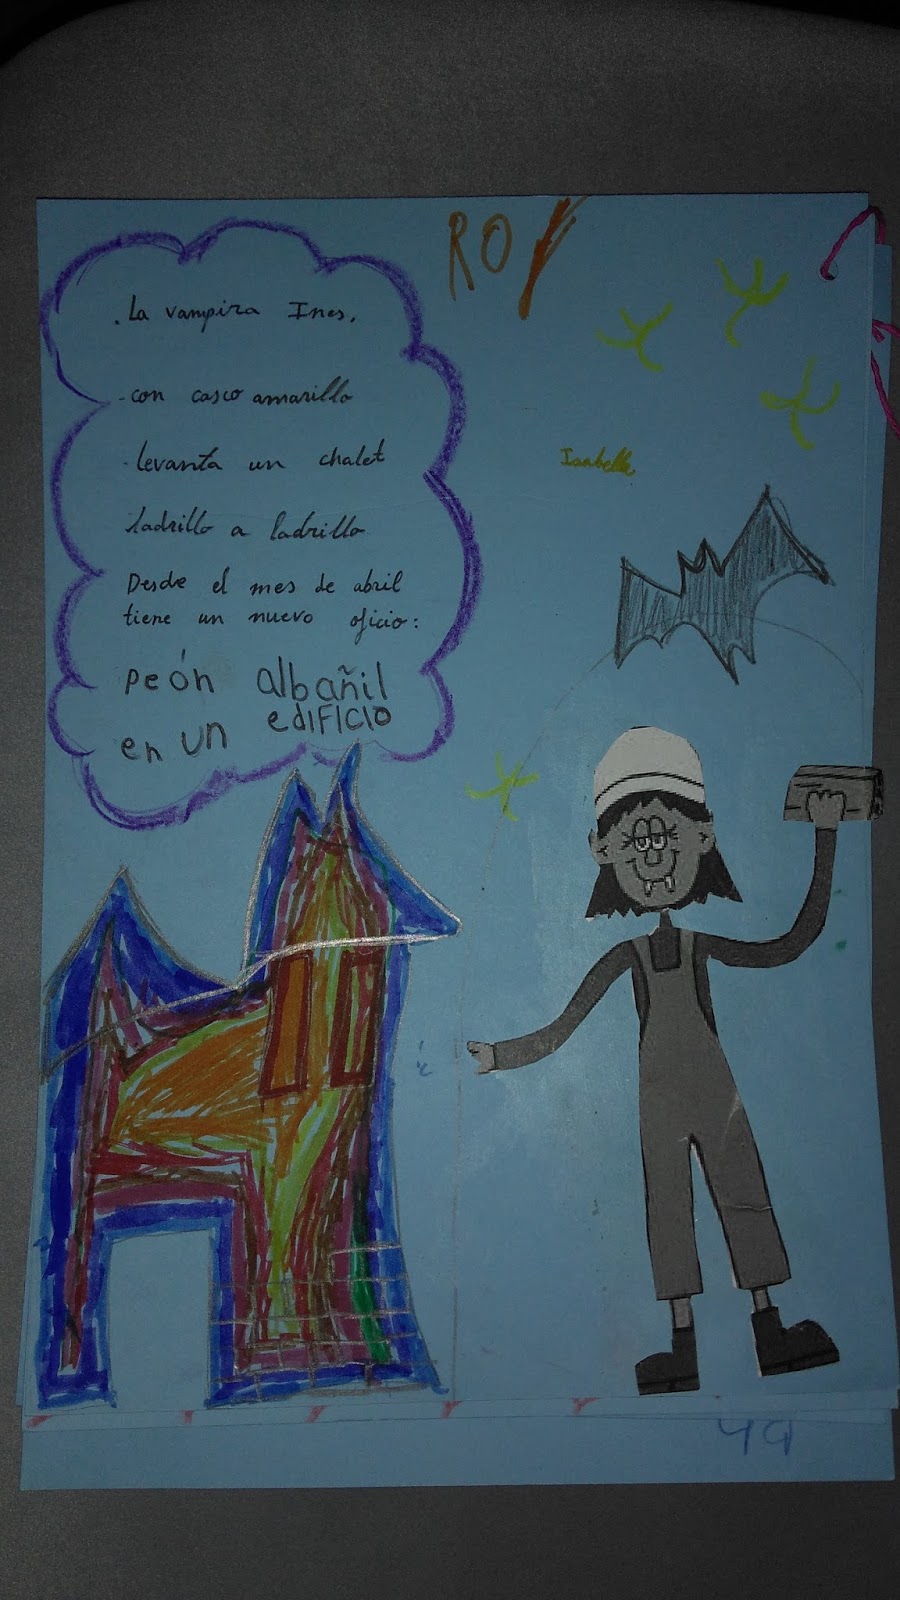 .La vampira Ines.
-con casco amarillo
-levanta un chalet
ladrillo a ladrillo
Desde el mes de abril
tiene un nuevo oficio:
Peón albañil
en un edificio
ROY
Isabelle
49